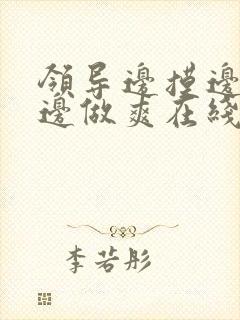 領导邊摸邊
邊做爽在綫
李若彤